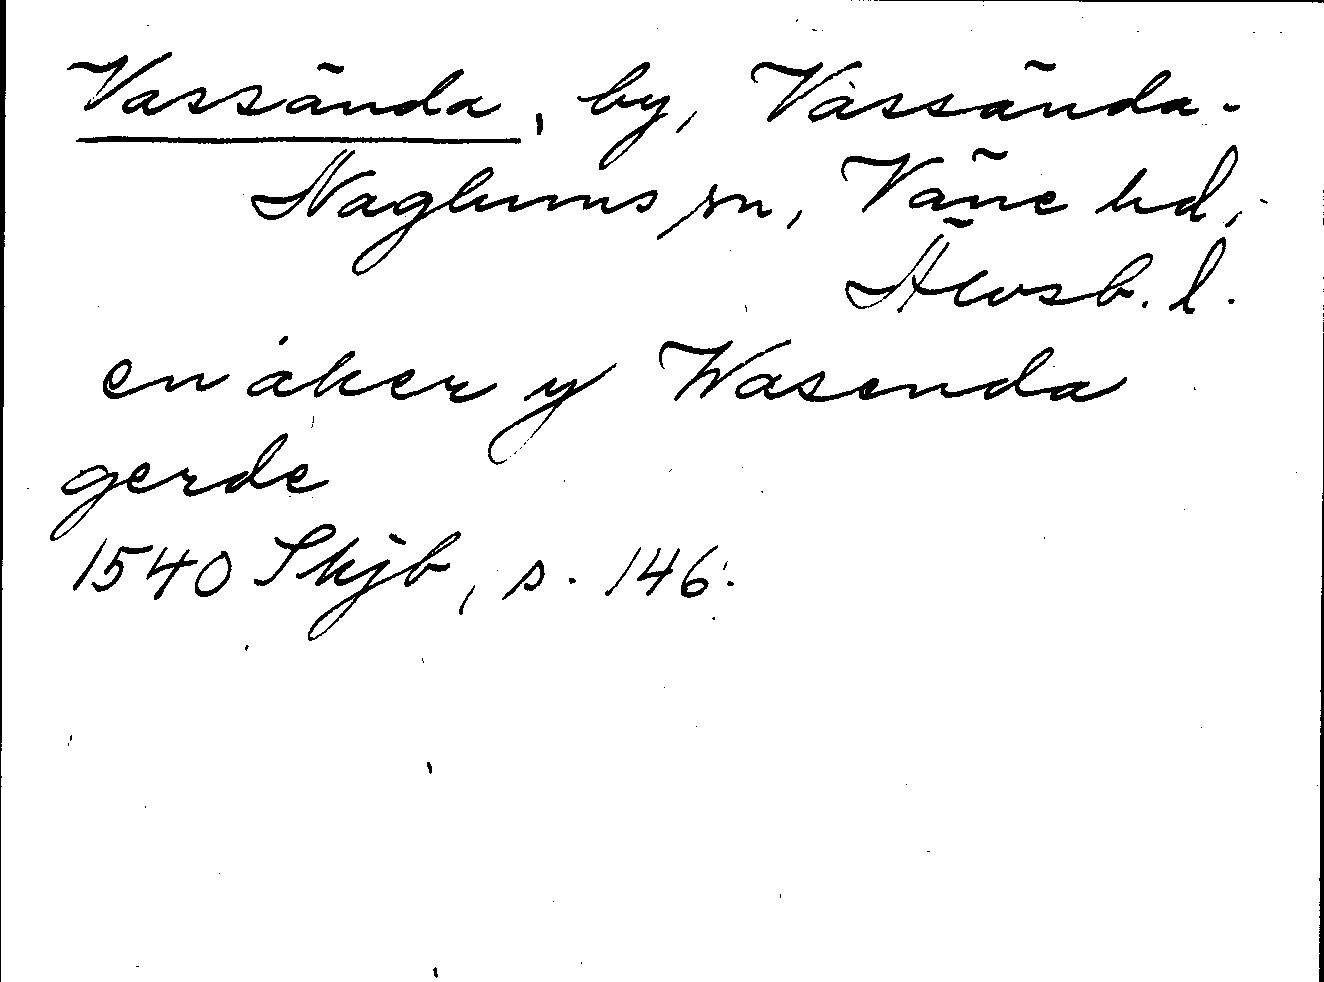 Vassända, by, Vassända-
Naglums sn, Väne hd,
Älvsb. l.
en åker y Wasenda
gerde
1540 Skjb, s. 146.